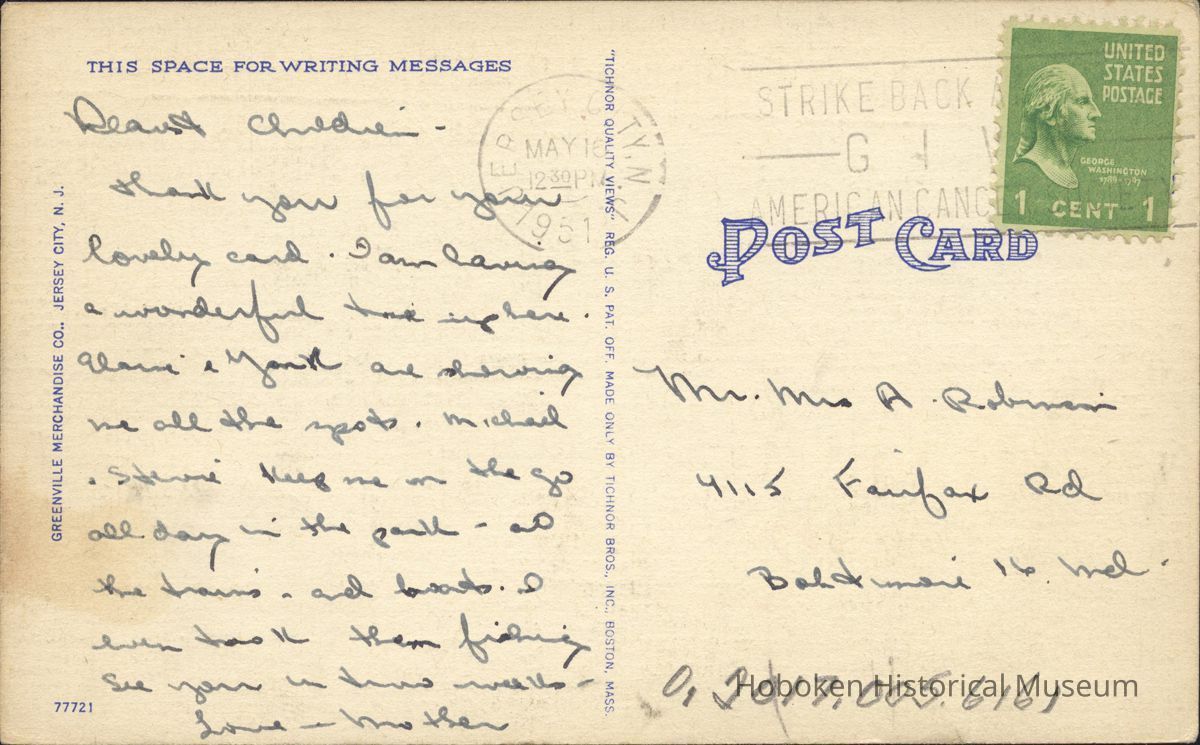 THIS SPACE FOR WRITING MESSAGES
Dearest Children -
Thank you for your
lovely card. I am having
a wonderful time up here.
& York are showing
me all the spots. Michael
& Stevie keep me on the go
all day in the park - at
the trains - and boats. I
even took them fishing
See you in two weeks -
Love - Mother
GREENVILLE MERCHANDISE CO., JERSEY CITY, N. J.
77721
"TICHNOR QUALITY VIEWS" REG. U. S. PAT. OFF. MADE ONLY BY TICHNOR BROS., INC., BOSTON, MASS.
JERSEY CITY, N.J.
MAY 16
12 30 PM
1951
STRIKE BACK A
G I V
AMERICAN CANC
UNITED
STATES
POSTAGE
GEORGE
WASHINGTON
1789-1797
1 CENT 1
POST CARD
Mr. Mrs A. Robinson
4115 Fairfax Rd
Baltimore 16 Md.
Hoboken Historical Museum